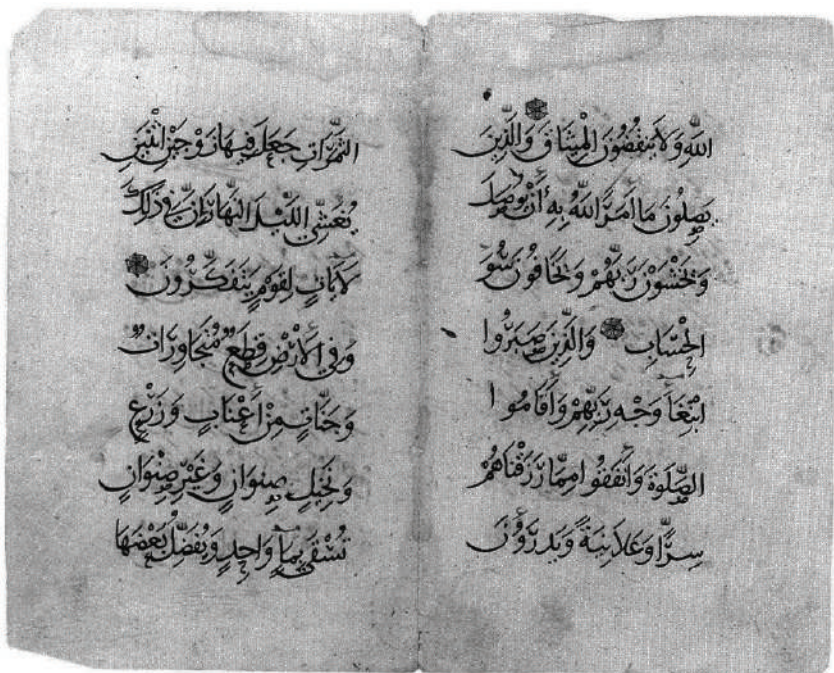 الله وَلَا يَنْقُضُونَ الْمِيثَاقَ وَالَّذِينَ
يَصِلُونَ مَا أَمَرَ اللهُ بِهِ أَنْ يُوصَلَ
وَيَخْشَوْنَ رَبَّهُمْ وَيَخَافُونَ سُوءَ
الْحِسَابِ وَالَّذِينَ صَبَرُوا
ابْتِغَاءَ وَجْهِ رَبِّهِمْ وَأَقَامُوا
الصَّلٰوةَ وَأَنْفَقُوا مِمَّا رَزَقْنَاهُمْ
سِرًّا وَعَلَانِيَةً وَيَدْرَؤُنَ
الثَّمَرَاتِ جَعَلَ فِيهَا زَوْجَيْنِ اثْنَيْنِ
يُغْشِي اللَّيْلَ النَّهَارَ إِنَّ فِي ذَلِكَ
لَآيَاتٍ لِقَوْمٍ يَتَفَكَّرُونَ
وَفِي الْأَرْضِ قِطَعٌ مُتَجَاوِرَاتٌ
وَجَنَّاتٍ مِنْ أَعْنَابٍ وَزَرْعٍ
وَنَخِيلٍ صِنْوَانٍ وَغَيْرِ صِنْوَانٍ
تُسْقَى بِمَاءٍ وَاحِدٍ وَيُفَضِّلُ بَعْضَهَا